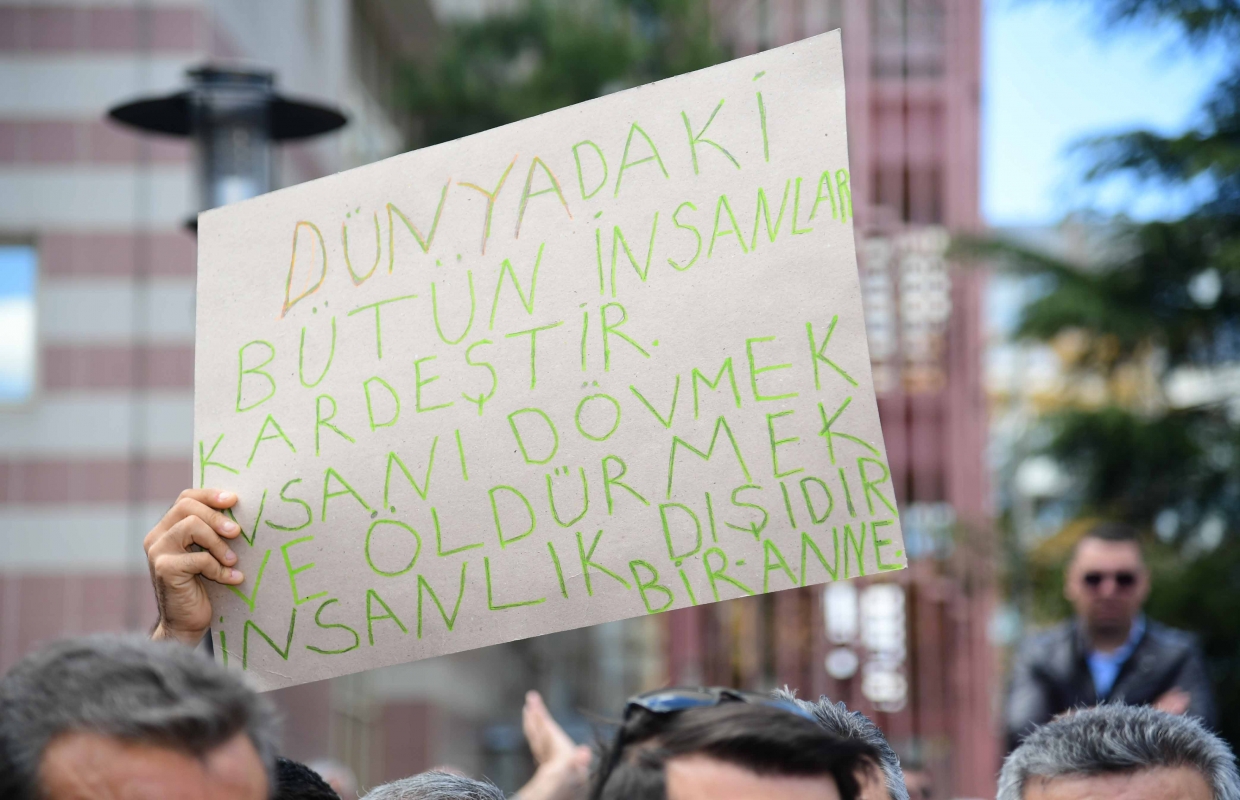 DÜNYADAKİ
BÜTÜN İNSANLAR
KARDEŞTİR.
NSANI DÖVMEK
VE ÖLDÜRMEK
İNSANLIK DIŞIDIR
BİR-ANNE.